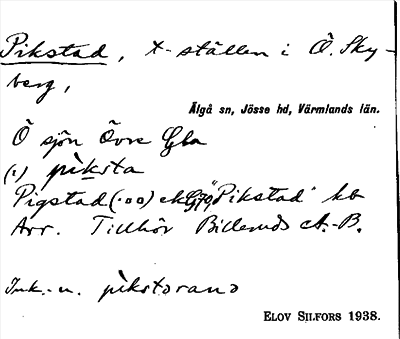 Pikstad, x-ställen i Ö. Sky-
berg,
Älgå sn, Jösse hd, Värmlands län.
Ö sjön Övre Gla
(1) pìksta
Pigstad (·00) ek G79, "Pikstad" kb
Arr. Tillhör Billeruds A.-B.
Ink.-n. pìkstorano
ELOV SILFORS 1938.